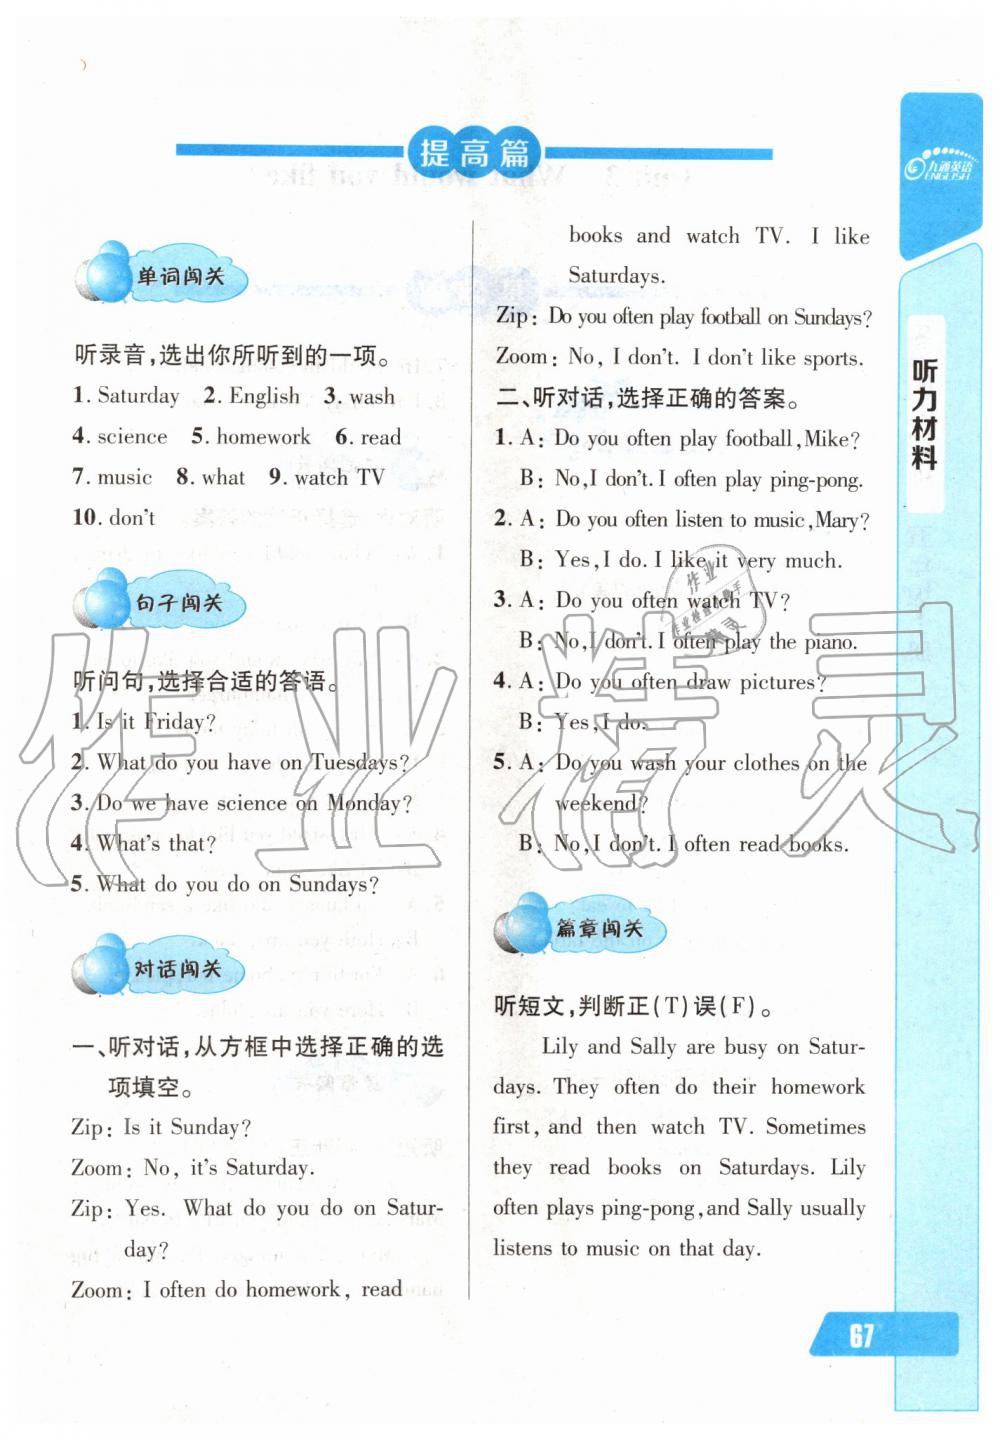 提高篇
单词闯关
听录音,选出你所听到的一项。
1. Saturday 2. English 3. wash
4. science 5. homework 6. read
7. music 8. what 9. watch TV
10. don't
句子闯关
听问句,选择合适的答语。
1. Is it Friday?
2. What do you have on Tuesdays?
3. Do we have science on Monday?
4. What's that?
5. What do you do on Sundays?
对话闯关
一、听对话,从方框中选择正确的选
项填空。
Zip: Is it Sunday?
Zoom: No, it's Saturday.
Zip: Yes. What do you do on Satur-
day?
Zoom: I often do homework, read
books and watch TV. I like
Saturdays.
Zip: Do you often play football on Sundays?
Zoom: No, I don't. I don't like sports.
二、听对话,选择正确的答案。
1. A: Do you often play football,Mike?
B: No,I don't. I often play ping-pong.
2. A: Do you often listen to music,Mary?
B: Yes,I do. I like it very much.
3. A: Do you often watch TV?
B: No,I don't. I often play the piano.
4. A: Do you often draw pictures?
B: Yes,I do.
5. A: Do you wash your clothes on the
weekend?
B: No,I don't. I often read books.
篇章闯关
听短文,判断正(T)误(F)。
Lily and Sally are busy on Satur-
days. They often do their homework
first, and then watch TV. Sometimes
they read books on Saturdays. Lily
often plays ping-pong,and Sally usually
listens to music on that day.
九通英语
ENGLISH
听力材料
67
作业精灵